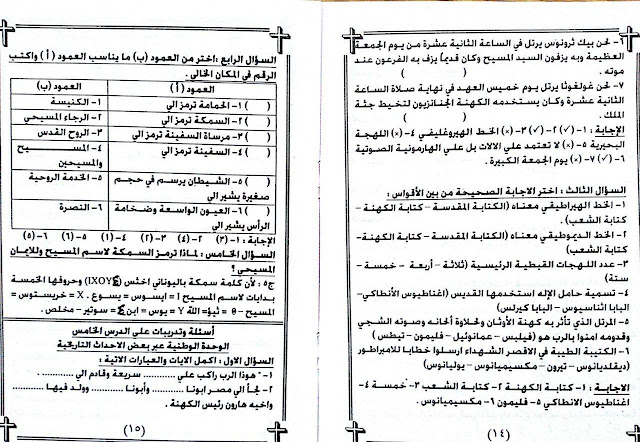 ٦- لحن بيك ثرونوس يرتل في الساعة الثانية عشرة من يوم الجمعة
العظيمة وبه يزفون السيد المسيح وكان قديماً يزف به الفرعون عند
موته . ( )
٧- لحن غولغوثا يرتل يوم خميس العهد في نهاية صلاة الساعة
الثانية عشرة وكان يستخدمه الكهنة الجنائزيون لتخيط جثة
الملك . ( )
الإجابة : ١- (✓) ٢- (✓) ٣- (×) الخط الهيروغليفي ٤- (×) اللهجة
البحيرية ٥- (×) لا تعتمد علي الالات بل علي الهارمونية الصوتية
٦- (✓) ٧- (×) يوم الجمعة الكبيرة .
السؤال الثالث : اختر الاجابة الصحيحة من بين الأقواس :
١- الخط الهيراطيقي معناه (الكتابة المقدسة – كتابة الكهنة –
كتابة الشعب) .
٢- الخط الديموطيقي معناه (الكتابة المقدسة – كتابة الكهنة –
كتابة الشعب)
٣- عدد اللهجات القبطية الرئيسية (ثلاثة – أربعة – خمسة –
ستة)
٤- تسمية حامل الإله استخدمها القديس (اغناطيوس الأنطاكي-
البابا اثناسيوس – البابا كيرلس)
٥- المرتل الذي تأثر به كهنة الأوثان ولحلاوة ألحانه وصوته الشجي
وقدومه امنوا بالرب هو (فيلبس – عمانوئيل – فليمون – تيطس)
٦- الكتيبة الطيبية في الاقصر الشهداء ارسلوا خطابا للامبراطور
(ديقلديانوس – تيرون – مكسيميانوس – يوليانوس)
الاجابة : ١- كتابة الكهنة ٢- كتابة الشعب ٣- خمسة ٤-
اغناطيوس الانطاكي ٥- فليمون ٦- مكسيميانوس .
(١٤)
السؤال الرابع : اختر من العمود (ب) ما يناسب العمود (أ) واكتب
الرقم في المكان الخالي .
العمود (أ) العمود (ب)
( ) ١- الحمامة ترمز الي ١- الكنيسة
( ) ٢- السمكة ترمز الي ٢- الرجاء المسيحي
( ) ٣- مرساة السفينة ترمز الي ٣- الروح القدس
( ) ٤- السفينة ترمز الي ٤- المسيح
والمسيحيين
( ) ٥- الشيطان يرسم في حجم ٥- الخدمة الروحية
صغيرة يشير الي
( ) ٦- العيون الواسعة وضخامة ٦- النصرة
الرأس يشير الي
الإجابة : ١- (٣) ٢- (٤) ٣- (٢) ٤- (١) ٥- (٦) ٦- (٥)
السؤال الخامس : لماذا ترمز السمكة لاسم المسيح وللايمان
المسيحي ؟
ج٥ : لأن كلمة سمكة باليوناني اخثس (IXOYⲤ) وحروفها الخمسة
بدايات لاسم المسيح I = ايسوس = يسوع . X = خريستوس =
المسيح – θ = ثيؤ= الله Y = يوس = ابن Ⲥ = سوتير – مخلص .
أسئلة وتدريبات علي الدرس الخامس
الوحدة الوطنية عبر بعض الاحداث التاريخية
السؤال الاول : اكمل الايات والعبارات الاتية :
١- " هوذا الرب راكب علي ........... سريعة وقادم الي ........... .
٢- لجأ الي مصر ابونا ........... وأبونا ........... وولد فيها ...........
واخيه هارون رئيس الكهنة .
(١٥)